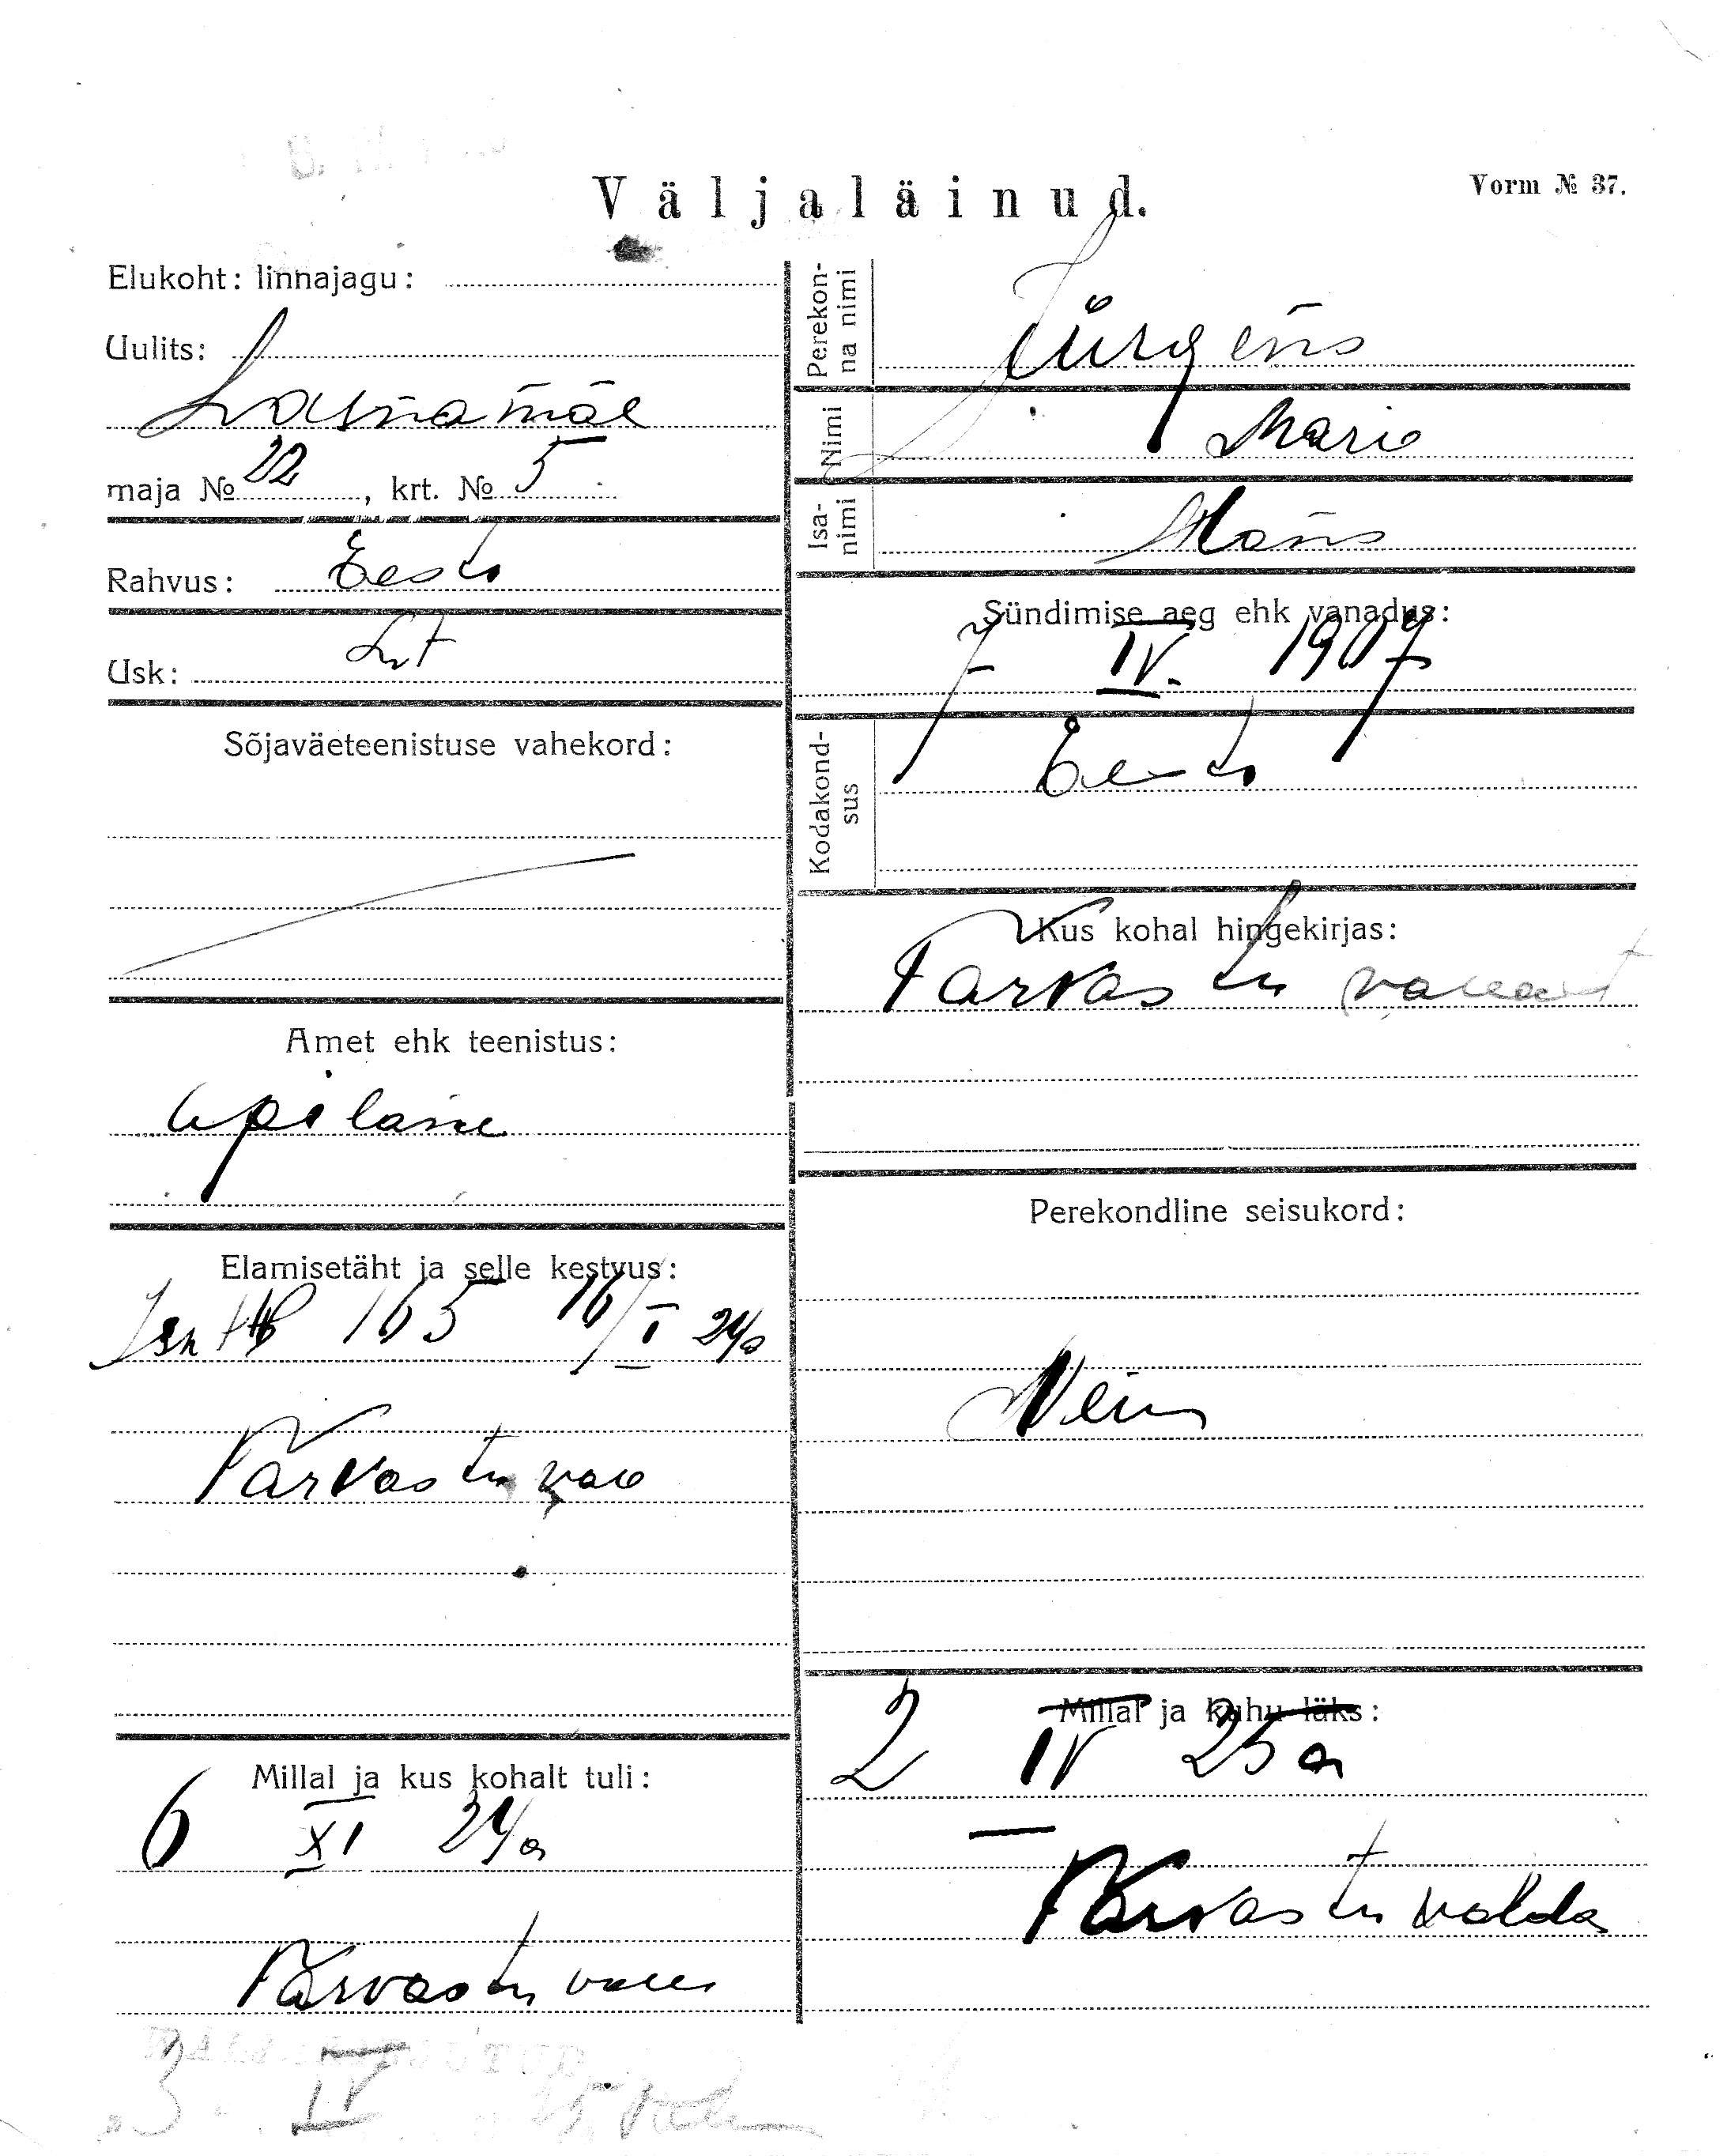 Väljaläinud.
Vorm № 37.
Elukoht: linnajagu:
Uulits:
Lasnamäe
maja № 22, krt. № 5
Rahvus: Eesti
Usk: Lut
Sõjaväeteenistuse vahekord:
Amet ehk teenistus:
õpilane
Elamisetäht ja selle kestvus:
Isn 165 16/I 24 a
Tarvastu
Millal ja kus kohalt tuli:
6 XI 24 a
Tarvastu
Perekonna nimi
Jürgens
Nimi
Marie
Isanimi
Hans
Sündimise aeg ehk vanadus:
7 IV. 1907
Kodakondsus
Eesti
Kus kohal hingekirjas:
Tarvastu
Perekondline seisukord:
Neiu
Millal ja kuhu läks:
2 IV 25 a
Tarvastu valda
3 IV